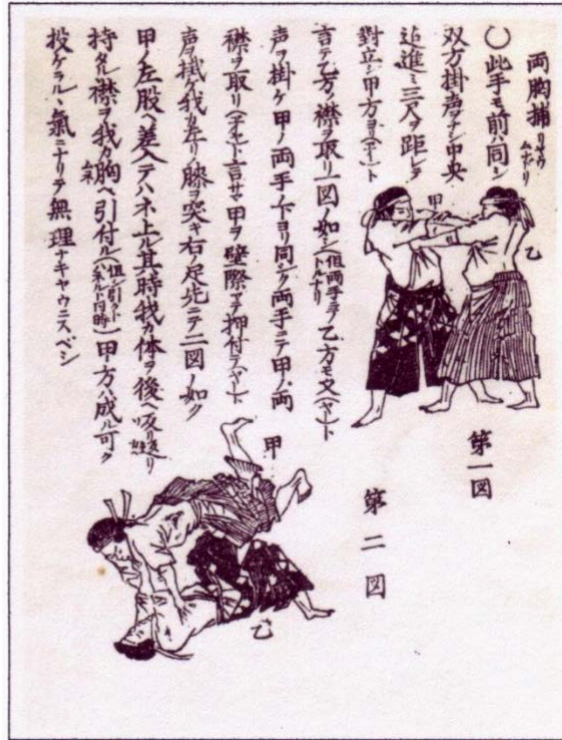 両胸捕
〇此手モ前ハ同シ
双方掛声ナシ中央
迠進ミ三尺ヲ距レテ
對立シ甲方ヨリ(ヤー)ト
言テ乙方ノ襟ヲ取リ一図ノ如シ(但両手ヲ トルナリ)乙方モ又(ヤー)ト
声ヲ掛ケ甲ノ両手ノ下ヨリ同シク両手ニテ甲ノ両
襟ヲ取リ ト言サマ甲ヲ壁際マテ押付テ(ヤー)ト
声ヲ掛ケ我カ左リノ膝ヲ突キ右ノ足先ニテ二図ノ如ク
甲ノ左股ヘ差入テハネ上ル其時我カ体ヲ後ヘ反リ返リ
持タル襟ヲ我カ胸ヘ引付ル(但シ引クトハネルト同時)甲方ハ成ル可ク
投ケラルヽ氣ニナリテ無理ナキヤウニスベシ
甲
乙
第一図
甲
乙
第二図